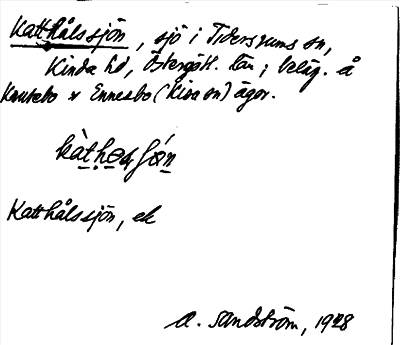 Katthålssjön, sjö i Tidersrums sn,
Kinda hd, Östergötl. län; beläg. å
Knutebo o Ennesbo (Kisa sn) ägor.
Katthålssjön, ek
A. Sandström, 1928